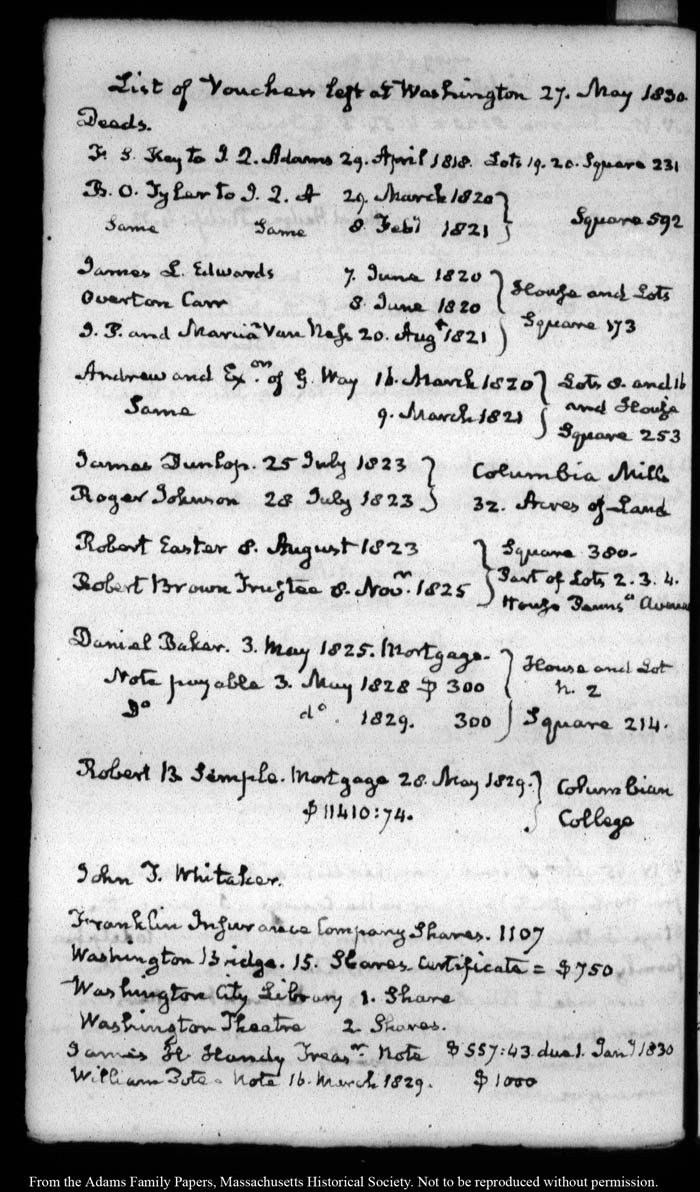 List of Vouchers left at Washington 27. May 1830
Deeds.
F. S. Key to J. Q. Adams 29. April 1818. Lots 19. 20. Square 231
B. O. Tyler to J. Q. A 29. March 1820
Same Same 8. Feby 1821 Square 592
James L. Edwards 7. June 1820 House and Lots
Overton Carr 8. June 1820
J. P. and Marcia Van Ness 20. Augt 1821 Square 173
Andrew and Exon. of G. Way 16. March 1820 Lots 8. and 16
Same 9. March 1821 and House
Square 253
James Dunlop. 25 July 1823 Columbia Mills
Roger Johnson 28 July 1823 32. Acres of Land
Robert Easter 8. August 1823 Square 380.
Robert Brown Trustee 8. Novr. 1825 Part of Lots 2. 3. 4.
House Pennsa Avenue
Daniel Baker. 3. May 1825. Mortgage.
Note payable 3. May 1828 $ 300 House and Lot
N. 2
Do do. 1829. 300 Square 214.
Robert B Semple. Mortgage 28. May 1829. Columbian
$11410:74. College
John F. Whitaker.
Franklin Insurance Company Shares. 1107
Washington Bridge. 15. Shares. Certificate = $750
Washington City Library 1. Share
Washington Theatre 2 Shares.
James H Handy Treasr. Note $557:43. due 1. Jany 1830
William Note 16. March 1829. $1000
From the Adams Family Papers, Massachusetts Historical Society. Not to be reproduced without permission.